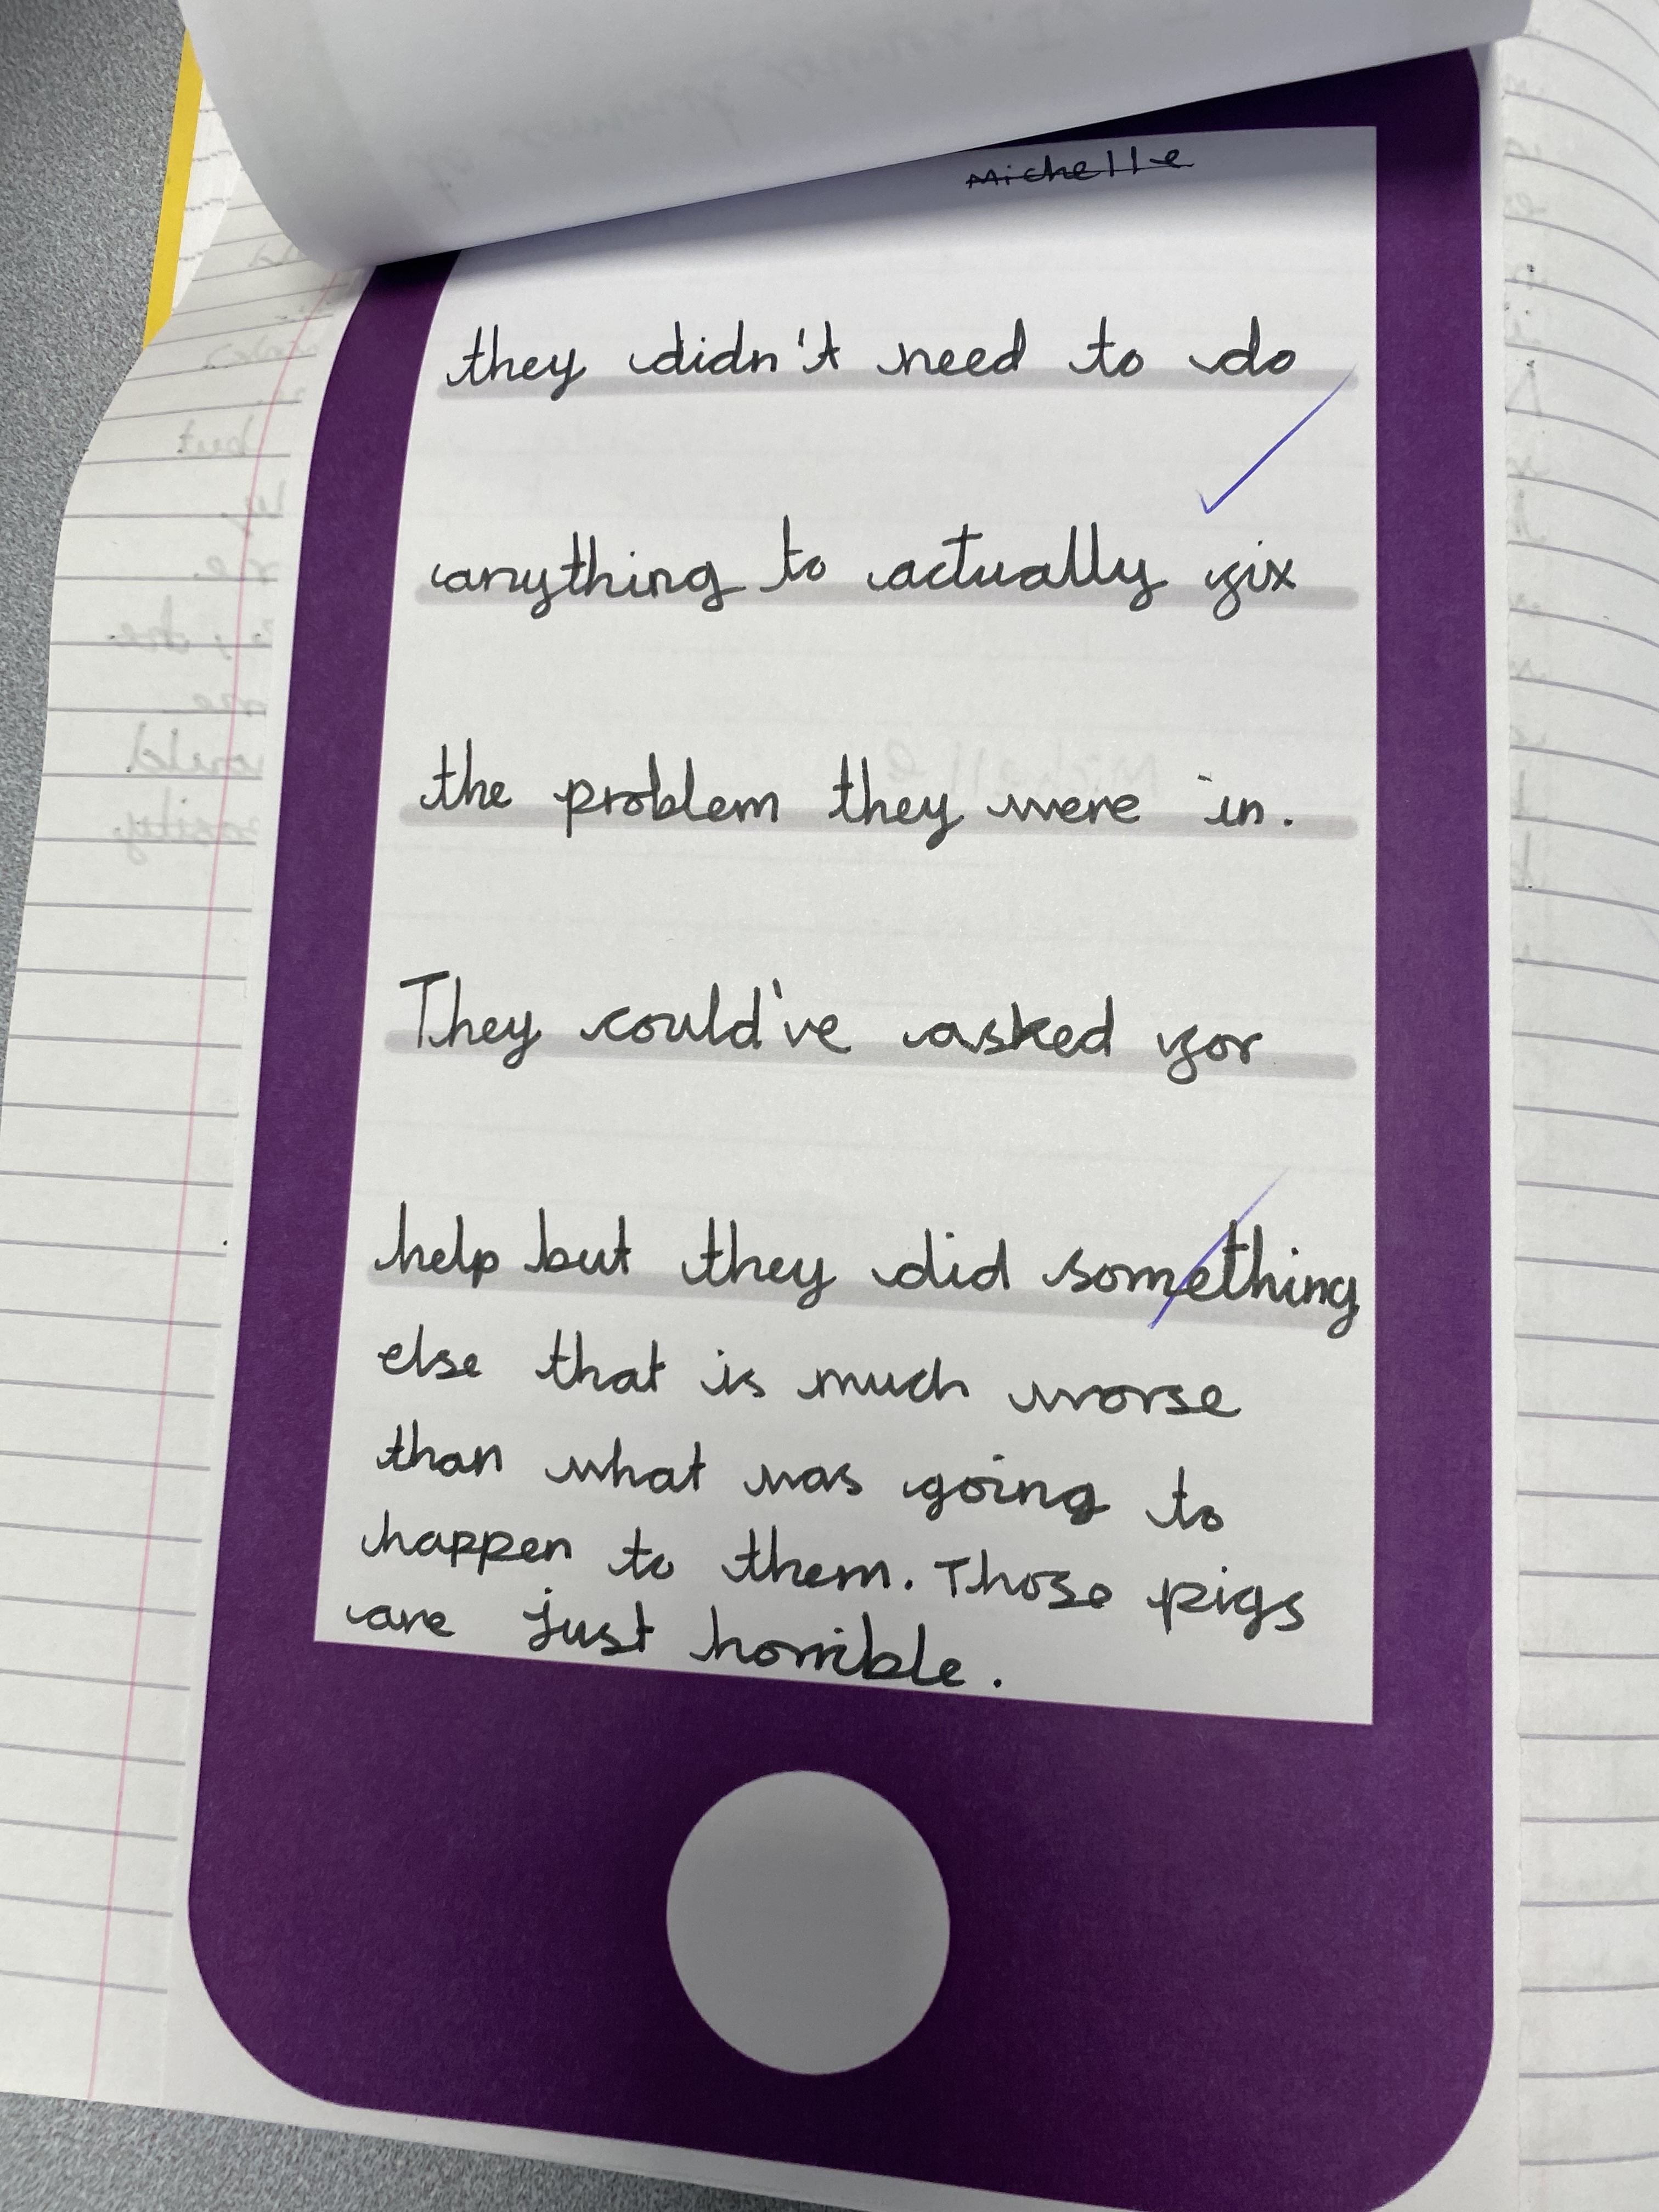 Michelle
they didn't need to do
anything to actually fix
the problem they were in.
They could've asked for
help but they did something
else that is much worse
than what was going to
happen to them. Those pigs
are just horrible.